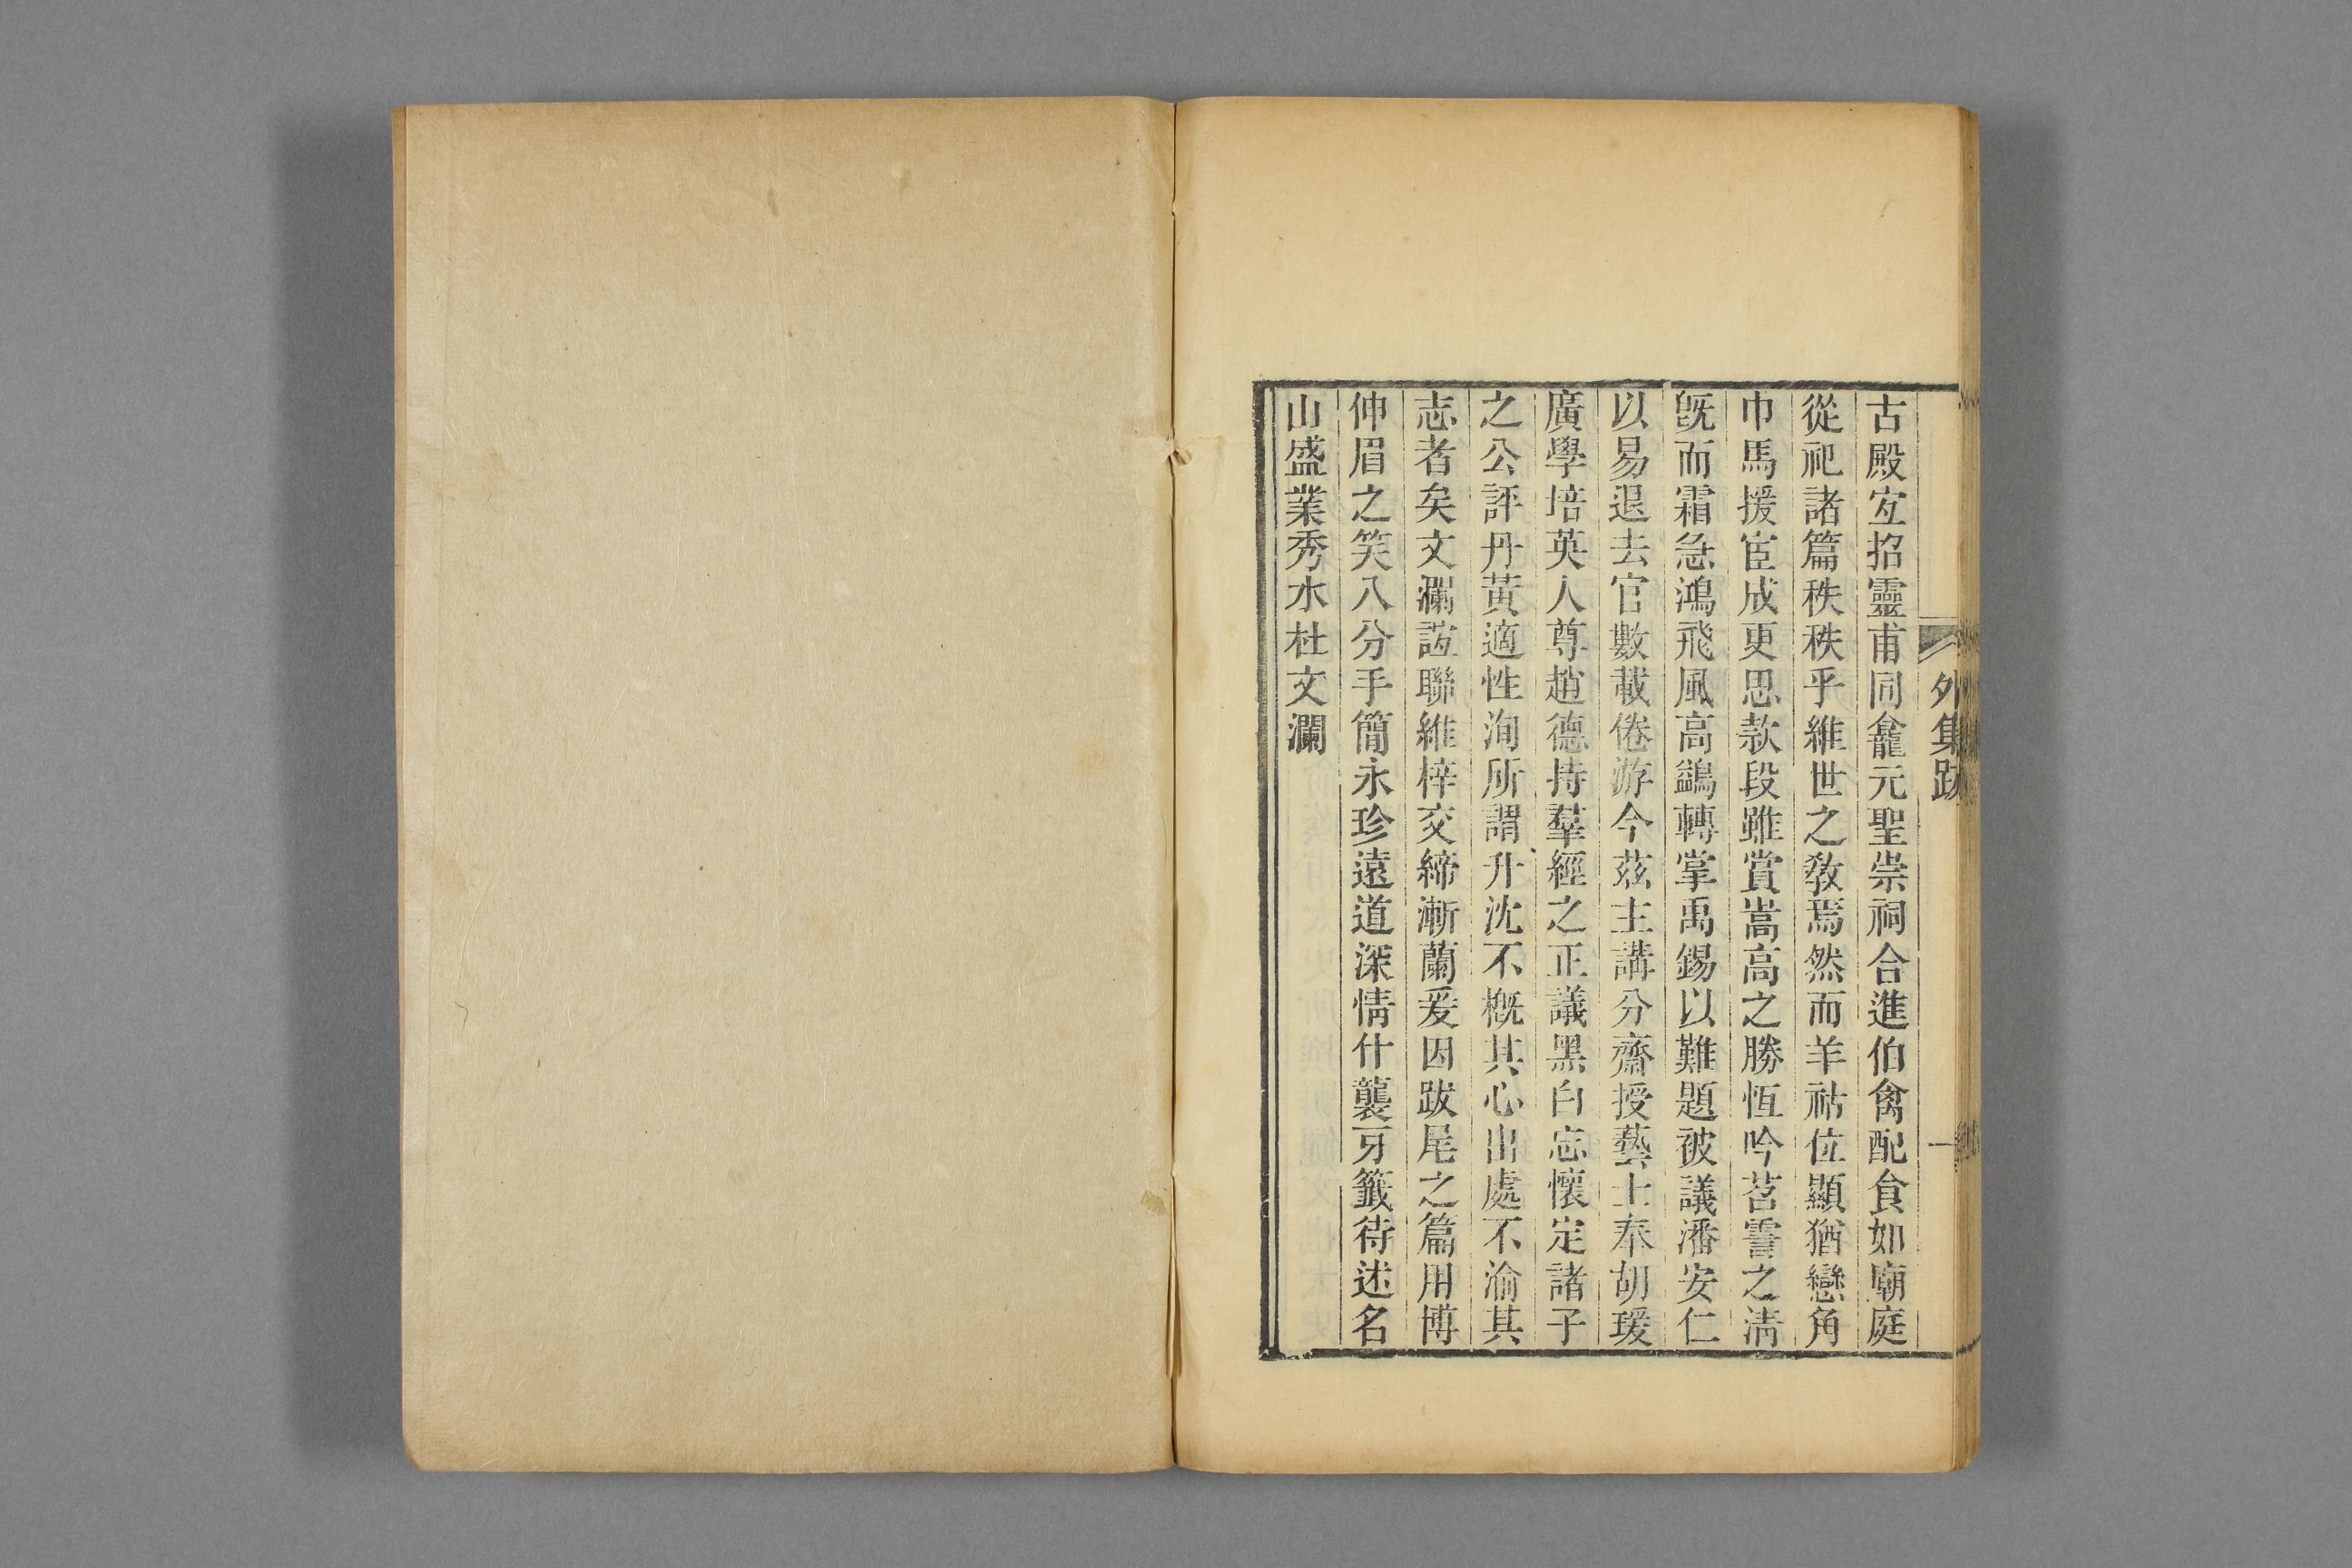 外集跋
一
古殿宐招靈甫同龕元聖崇祠合進伯禽配食如廟庭
從祀諸篇秩秩乎維世之敎焉然而羊祜位顯猶戀角
巾馬援宦成更思款段雖賞嵩高之勝恆吟苕霅之淸
旣而霜急鴻飛風高鷁轉掌禹錫以難題被議潘安仁
以易退去官數載倦游今茲主講分齋授藝士奉胡瑗
廣學培英人尊趙德持羣經之正議黑白忘懷定諸子
之公評丹黃適性洵所謂升沈不槪其心出處不渝其
志者矣文瀾誼聯維梓交締漸蘭爰因跋尾之篇用博
伸眉之笑八分手簡永珍遠道深情什襲牙籤待述名
山盛業秀水杜文瀾